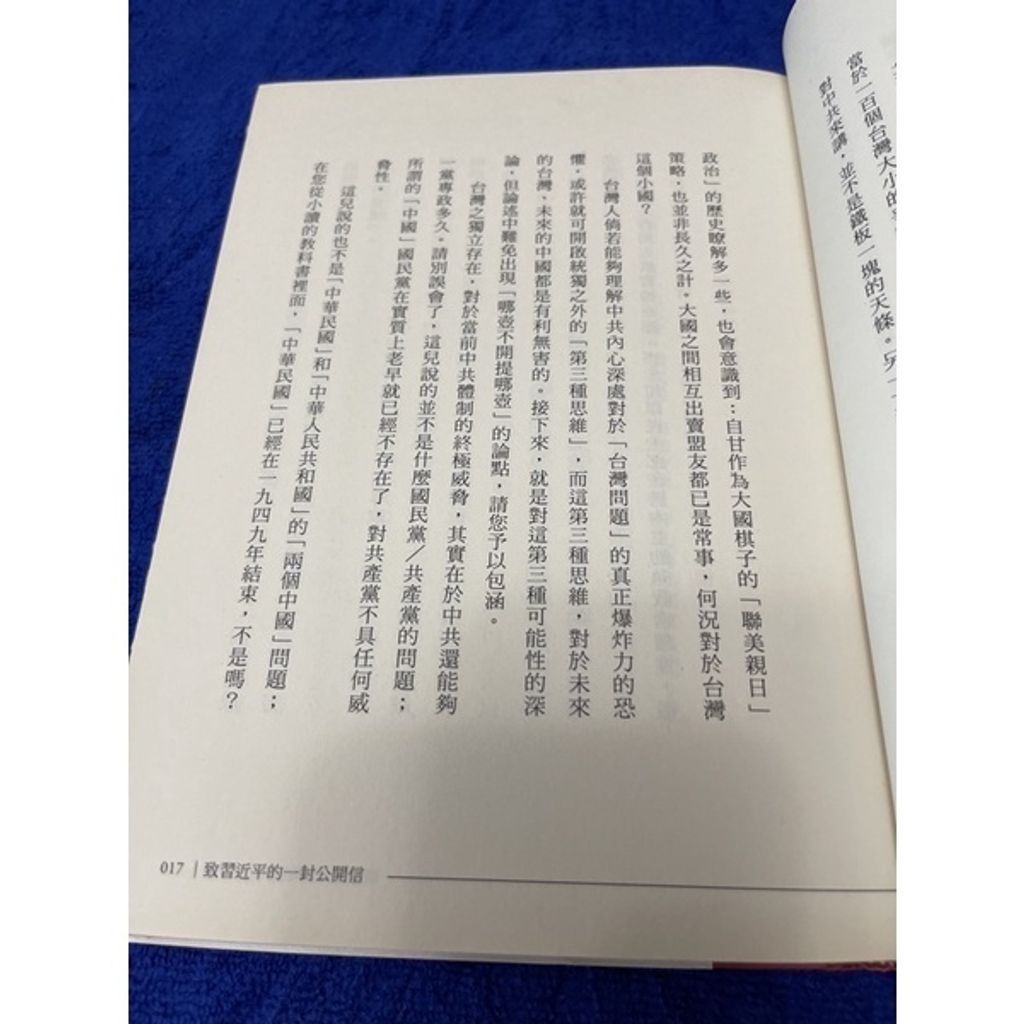 當於一百個台灣大小的
對中共來講，並不是鐵板一塊的天條。另一
政治」的歷史瞭解多一些，也會意識到：自甘作為大國棋子的「聯美親日」
策略，也並非長久之計。大國之間相互出賣盟友都已是常事，何況對於台灣
這個小國？
台灣人倘若能夠理解中共內心深處對於「台灣問題」的真正爆炸力的恐
懼，或許就可開啟統獨之外的「第三種思維」，而這第三種思維，對於未來
的台灣、未來的中國都是有利無害的。接下來，就是對這第三種可能性的深
論，但論述中難免出現「哪壺不開提哪壺」的論點，請您予以包涵。
台灣之獨立存在，對於當前中共體制的終極威脅，其實在於中共還能夠
一黨專政多久。請別誤會了，這兒說的並不是什麼國民黨／共產黨的問題；
所謂的「中國」國民黨在實質上老早就已經不存在了，對共產黨不具任何威
脅性。
這兒說的也不是「中華民國」和「中華人民共和國」的「兩個中國」問題；
在您從小讀的教科書裡面，「中華民國」已經在一九四九年結束，不是嗎？
017｜致習近平的一封公開信